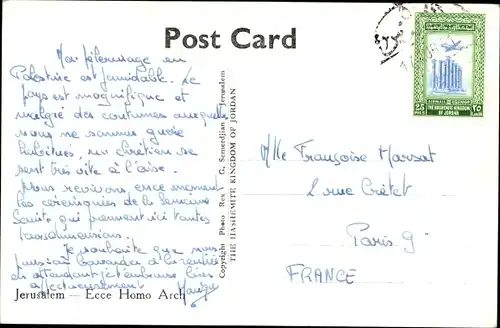 Post Card
Mon pèlerinage en
Palestine est formidable. Le
pays est magnifique et
malgré des coutumes auxquelles
nous ne sommes guère
habitués, un chrétien se
sent très vite à l'aise.
Nous revivons en ce moment
les cérémonies de la Semaine
Sainte qui prennent ici toutes
leurs dimensions.
Je souhaite que nous
puissions bavarder à la rentrée
en attendant je t'embrasse bien
affectueusement
Jerusalem — Ecce Homo Arch
Copyright Photo Rex — G. Semerdjian — Jerusalem
THE HASHEMITE KINGDOM OF JORDAN
THE HASHEMITE KINGDOM
OF JORDAN
25
FILS
٢٥
Mlle Françoise Marsat
2 rue Crétet
Paris 9e
FRANCE